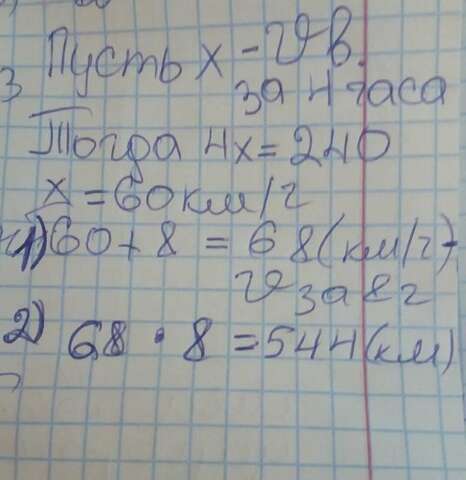 3
Пусть x - v в.
за 4 часа
Тогда 4x = 240
x = 60 км/ч
1) 60 + 8 = 68 (км/ч) -
v за 8 ч
2) 68 · 8 = 544 (км)